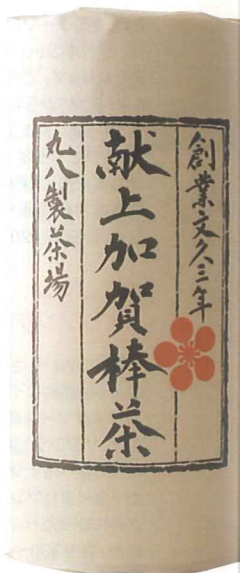 創業文久三年
献上加賀棒茶
丸八製茶場